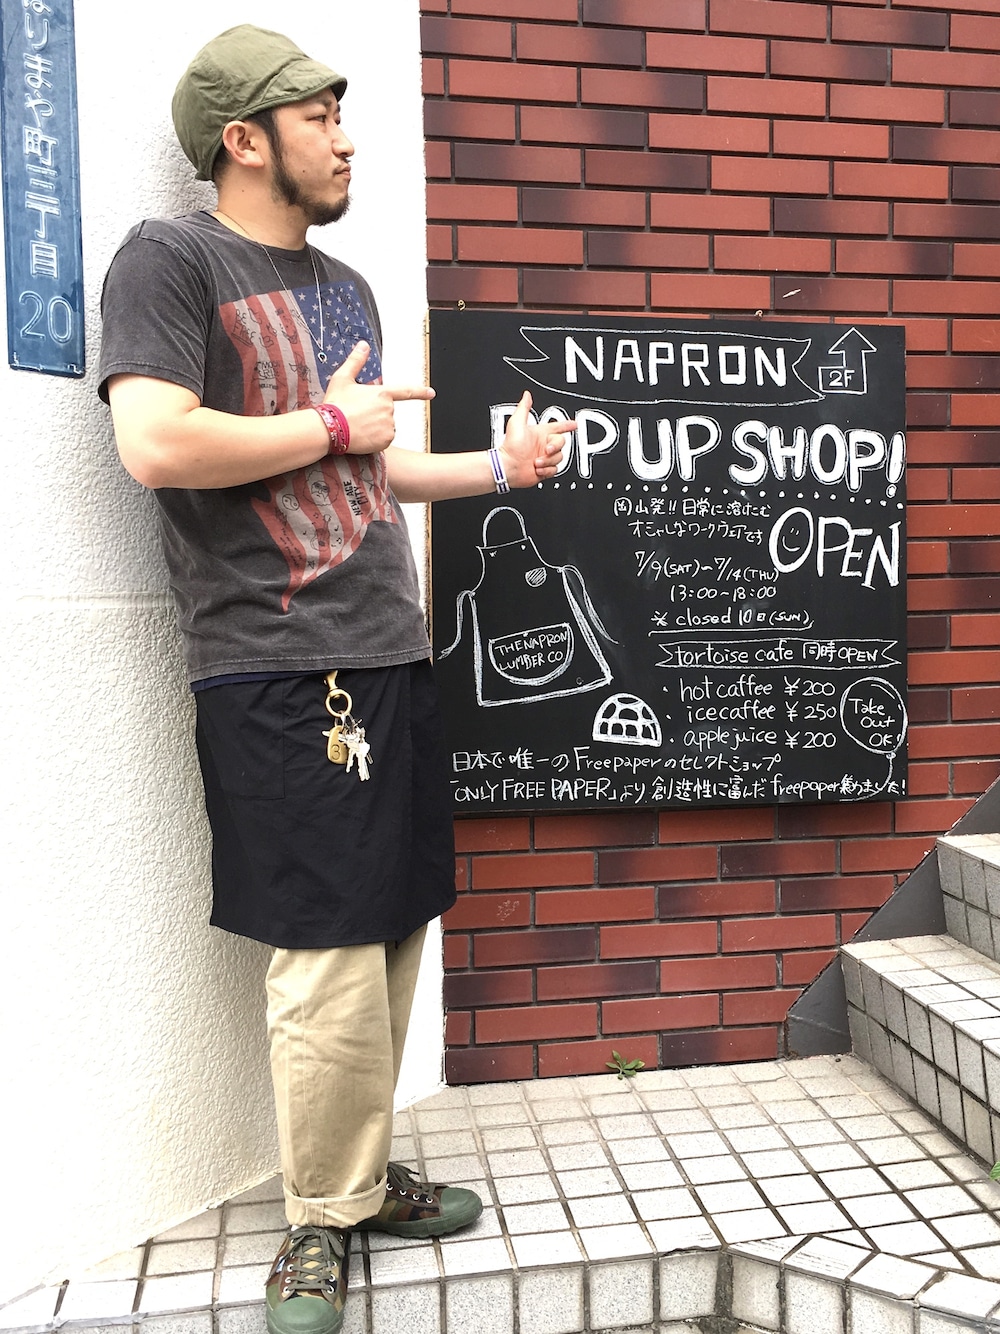 なみや町三丁目
20
NAPRON
2F
POP UP SHOP!
岡山発!! 日常に溶けこむ
オシャレなワークウェアです
OPEN
7/9(SAT)~7/14(THU)
13:00~18:00
※closed 10日(SUN)
tortoise cafe 同時OPEN
・hot caffee ¥200
・ice caffee ¥250
・apple juice ¥200
Take
Out
OK!
THE NAPRON
LUMBER CO
日本で唯一のFreepaperのセレクトショップ
「ONLY FREE PAPER」より創造性に富んだfreepaper集めました!
NEW AGE
CITY